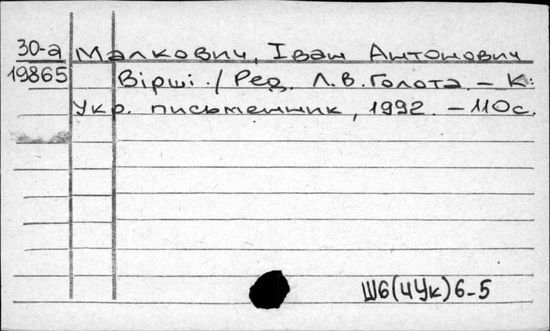 30-а Малкович, Іван Антонович
19865 Вірші / Ред. Л.В. Голота. – К:
Укр. письменник, 1992. – 110с.
Ш6(4Ук)6-5